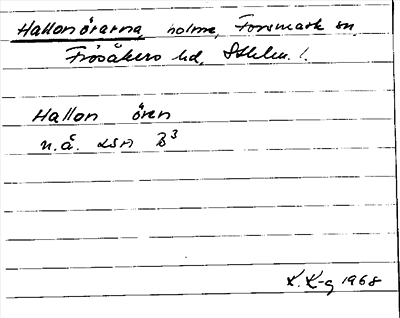 Hallonörarna, holme, Forsmark sn,
Frösåkers hd, Sthlm. l.
Hallon ören
n.å. LSA B³
K. K-g 1968